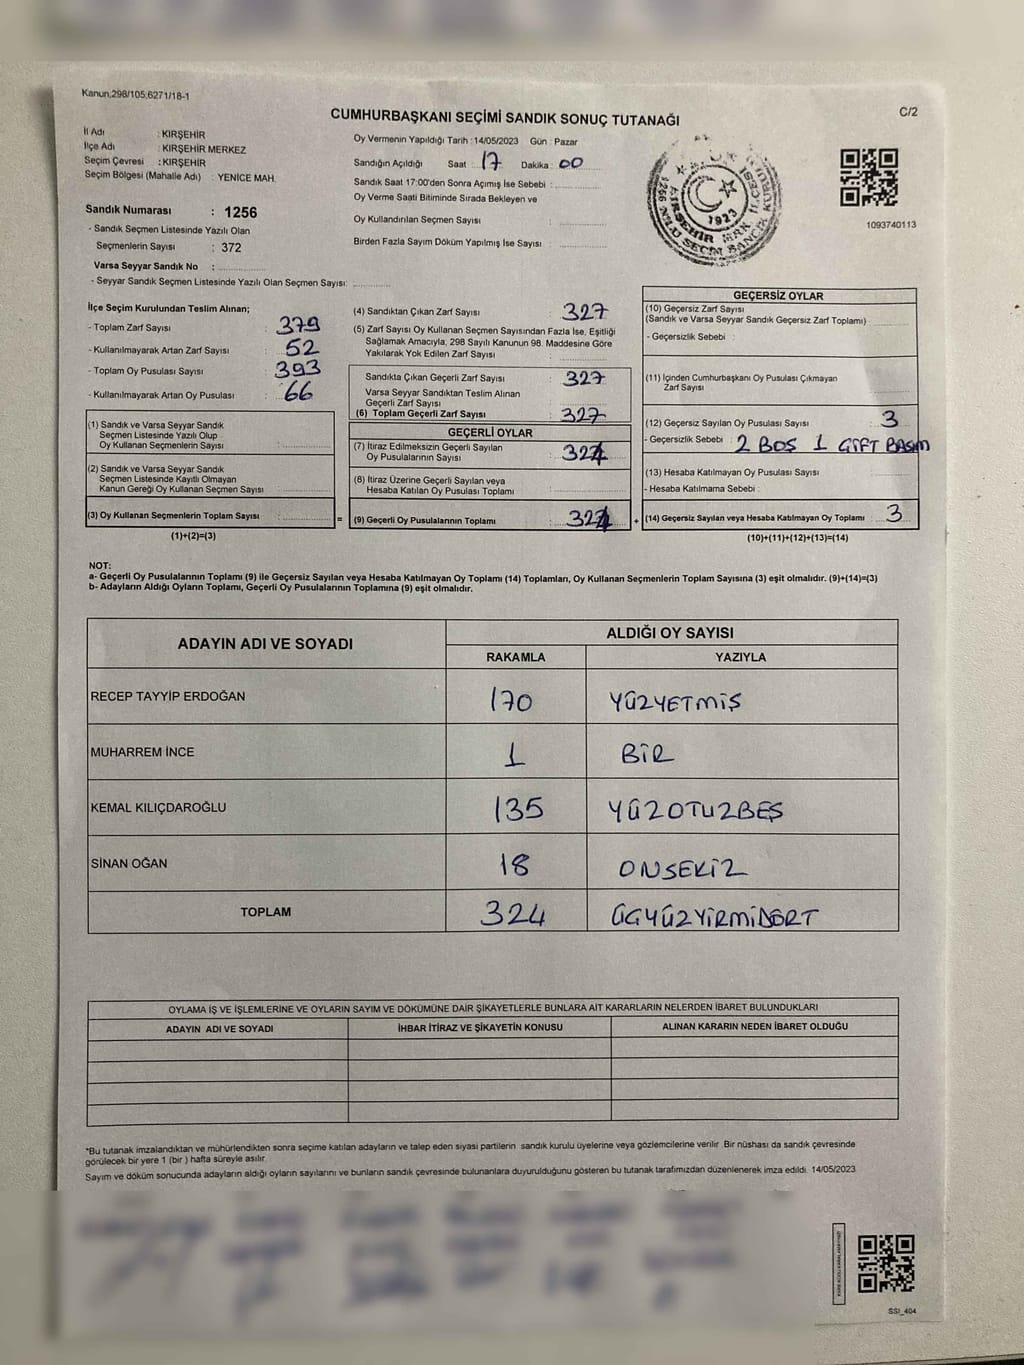 Kanun;298/105;6271/18-1
C/2
CUMHURBAŞKANI SEÇİMİ SANDIK SONUÇ TUTANAĞI
İl Adı : KIRŞEHİR
İlçe Adı : KIRŞEHİR MERKEZ
Seçim Çevresi : KIRŞEHİR
Seçim Bölgesi (Mahalle Adı) : YENİCE MAH.
Sandık Numarası : 1256
- Sandık Seçmen Listesinde Yazılı Olan
Seçmenlerin Sayısı : 372
Varsa Seyyar Sandık No :
- Seyyar Sandık Seçmen Listesinde Yazılı Olan Seçmen Sayısı:
Oy Vermenin Yapıldığı Tarih : 14/05/2023 Gün : Pazar
Sandığın Açıldığı Saat : 17 Dakika : 00
Sandık Saat 17:00'den Sonra Açımış İse Sebebi :
Oy Verme Saati Bitiminde Sırada Bekleyen ve
Oy Kullandırılan Seçmen Sayısı :
Birden Fazla Sayım Döküm Yapılmış İse Sayısı :
1923
1093740113
İlçe Seçim Kurulundan Teslim Alınan;
- Toplam Zarf Sayısı : 379
- Kullanılmayarak Artan Zarf Sayısı : 52
- Toplam Oy Pusulası Sayısı : 393
- Kullanılmayarak Artan Oy Pusulası : 66
(1) Sandık ve Varsa Seyyar Sandık
Seçmen Listesinde Yazılı Olup
Oy Kullanan Seçmenlerin Sayısı :
(2) Sandık ve Varsa Seyyar Sandık
Seçmen Listesinde Kayıtlı Olmayan
Kanun Gereği Oy Kullanan Seçmen Sayısı :
(3) Oy Kullanan Seçmenlerin Toplam Sayısı :
(1)+(2)=(3)
=
(4) Sandıktan Çıkan Zarf Sayısı : 327
(5) Zarf Sayısı Oy Kullanan Seçmen Sayısından Fazla İse, Eşitliği
Sağlamak Amacıyla, 298 Sayılı Kanunun 98. Maddesine Göre
Yakılarak Yok Edilen Zarf Sayısı :
Sandıkta Çıkan Geçerli Zarf Sayısı : 327
Varsa Seyyar Sandıktan Teslim Alınan
Geçerli Zarf Sayısı :
(6) Toplam Geçerli Zarf Sayısı : 327
GEÇERLİ OYLAR
(7) İtiraz Edilmeksizin Geçerli Sayılan
Oy Pusulalarının Sayısı : 324
(8) İtiraz Üzerine Geçerli Sayılan veya
Hesaba Katılan Oy Pusulası Toplamı :
(9) Geçerli Oy Pusulalarının Toplamı : 324
+
GEÇERSİZ OYLAR
(10) Geçersiz Zarf Sayısı
(Sandık ve Varsa Seyyar Sandık Geçersiz Zarf Toplamı) :
- Geçersizlik Sebebi :
(11) İçinden Cumhurbaşkanı Oy Pusulası Çıkmayan
Zarf Sayısı :
(12) Geçersiz Sayılan Oy Pusulası Sayısı : 3
- Geçersizlik Sebebi : 2 BOŞ 1 ÇİFT BASIM
(13) Hesaba Katılmayan Oy Pusulası Sayısı :
- Hesaba Katılmama Sebebi :
(14) Geçersiz Sayılan veya Hesaba Katılmayan Oy Toplamı : 3
(10)+(11)+(12)+(13)=(14)
NOT:
a- Geçerli Oy Pusulalarının Toplamı (9) ile Geçersiz Sayılan veya Hesaba Katılmayan Oy Toplamı (14) Toplamları, Oy Kullanan Seçmenlerin Toplam Sayısına (3) eşit olmalıdır. (9)+(14)=(3)
b- Adayların Aldığı Oyların Toplamı, Geçerli Oy Pusulalarının Toplamına (9) eşit olmalıdır.
ADAYIN ADI VE SOYADI
ALDIĞI OY SAYISI
RAKAMLA YAZIYLA
RECEP TAYYİP ERDOĞAN 170 YÜZYETMİŞ
MUHARREM İNCE 1 BİR
KEMAL KILIÇDAROĞLU 135 YÜZOTUZBEŞ
SİNAN OĞAN 18 ONSEKİZ
TOPLAM 324 ÜÇYÜZYİRMİDÖRT
OYLAMA İŞ VE İŞLEMLERİNE VE OYLARIN SAYIM VE DÖKÜMÜNE DAİR ŞİKAYETLERLE BUNLARA AİT KARARLARIN NELERDEN İBARET BULUNDUKLARI
ADAYIN ADI VE SOYADI İHBAR İTİRAZ VE ŞİKAYETİN KONUSU ALINAN KARARIN NEDEN İBARET OLDUĞU
*Bu tutanak imzalandıktan ve mühürlendikten sonra seçime katılan adayların ve talep eden siyasi partilerin sandık kurulu üyelerine veya gözlemcilerine verilir. Bir nüshası da sandık çevresinde
görülecek bir yere 1 (bir ) hafta süreyle asılır.
Sayım ve döküm sonucunda adayların aldığı oyların sayılarını ve bunların sandık çevresinde bulunanlara duyurulduğunu gösteren bu tutanak tarafımızdan düzenlenerek imza edildi. 14/05/2023
SSI_404